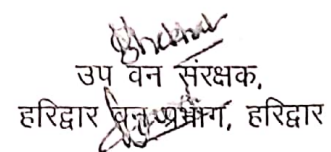 उप वन संरक्षक,
हरिद्वार वन प्रभाग, हरिद्वार